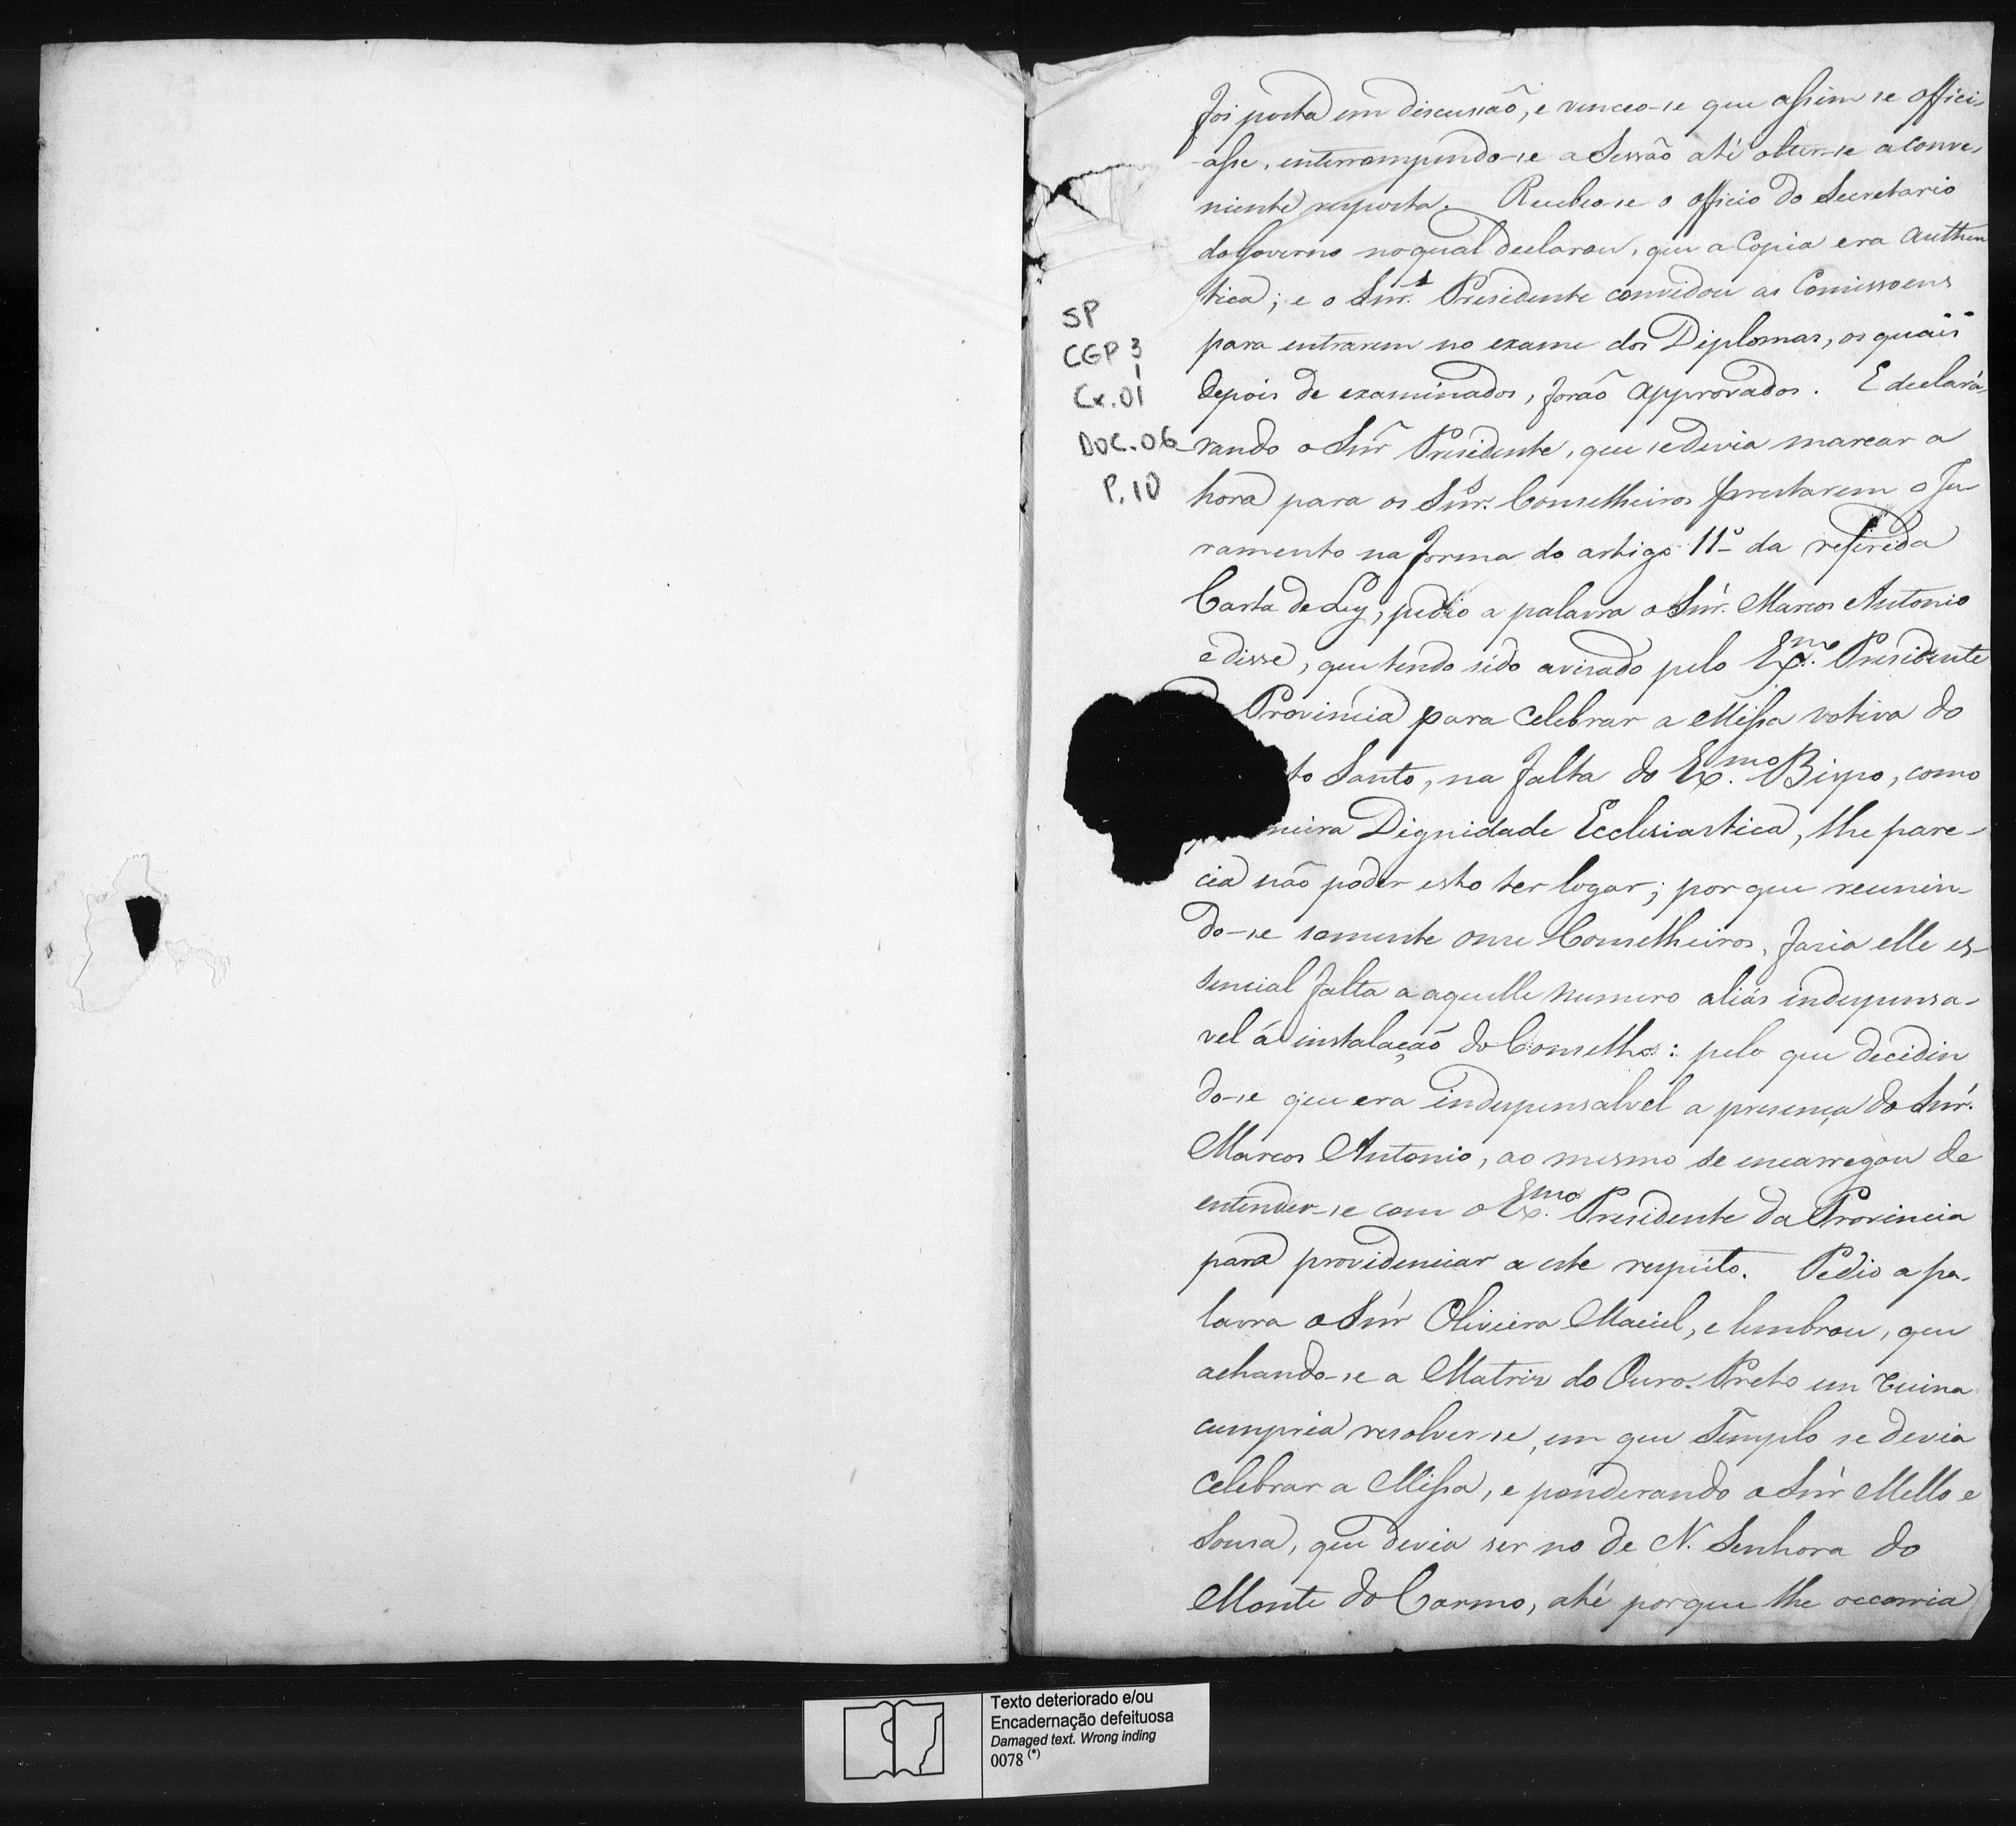 foi posta em discussão, e venceo-se que assim se offici-
-asse, enterrompendo-se a Sessão até obter-se a conve-
niente resposta. Recebeo-se o officio do Secretario
do Governo no qual declarou, que a Copia era authen
tica; e o Snr. Presidente convidou as Comissoens
para entrarem no exame dos Diplomas, os quais
depois de examinados, forão approvados. E declará-
rando o Snr Presidente, que se devia marcar a
hora para os Snrs. Conselheiros prestarem o Ju-
ramento na forma do artigo 11º da referida
Carta de Ley, pedio a palavra o Snr. Marcos Antonio
e disse, que tendo sido avisado pelo Exmo. Presidente
Provincia para celebrar a Missa votiva do
to Santo, na falta do Exmo. Bispo, como
meira Dignidade Ecclesiastica, lhe pare-
cia não poder esto ter logar; por que reunin-
do-se somente onse Conselheiros, faria elle es-
sencial falta a aquelle numero aliás indespensa-
vel á instalação do Conselho: pelo que decidin
do-se que era indespensalvel a presença do Snr.
Marcos Antonio, ao mesmo se encarregou de
entender-se com o Exmo. Presidente da Provincia
para providenciar a este respeito. Pedio a pa-
lavra o Snr Oliveira Maciel, e lembrou, que
achando-se a Matriz do Ouro-Preto em ruina
cumpria resolver-se, em que Templo se devia
celebrar a Missa, e ponderando o Snr Mello e
Sousa, que devia ser no de N. Senhora do
Monte do Carmo, até porque lhe occorria
SP
CGP 3
1
Cx.01
DOC.06
P.10
Texto deteriorado e/ou
Encadernação defeituosa
Damaged text. Wrong inding
0078 (*)